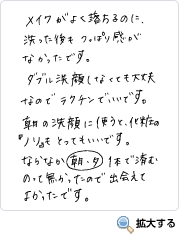 メイクがよく落ちるのに、
洗った後もつっぱり感が
なかったです。
ダブル洗顔しなくても大丈夫
なのでラクチンでいいです。
朝の洗顔に使うと、化粧の
"ノリ"もとってもいいです。
なかなか朝・夕1本で済む
のって無かったので出会えて
よかったです。
拡大する